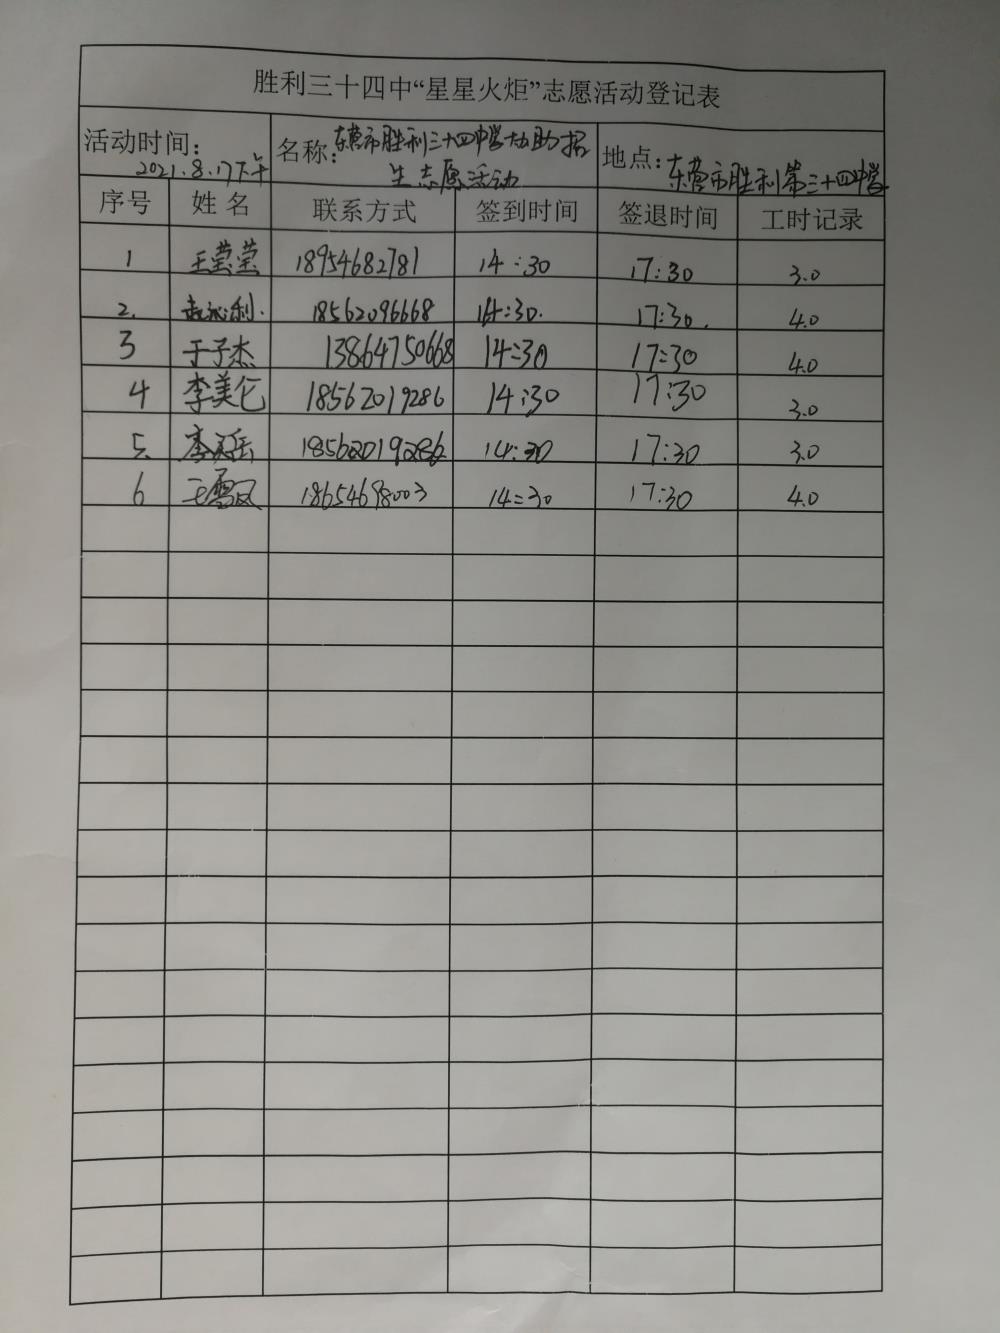 胜利三十四中“星星火炬”志愿活动登记表
活动时间： 2021.8.17下午 名称：东营市胜利三十四中学协助招生志愿活动 地点：东营市胜利第三十四中学
序号 姓名 联系方式 签到时间 签退时间 工时记录
1 王莹莹 18954682781 14:30 17:30 3.0
2. 18562096668 14:30. 17:30. 4.0
3 于子杰 13864750668 14:30 17:30 4.0
4 李美仑 18562019286 14:30 17:30 3.0
5. 18562019286 14:30 17:30 3.0
6 王雪凤 18654698003 14:30 17:30 4.0